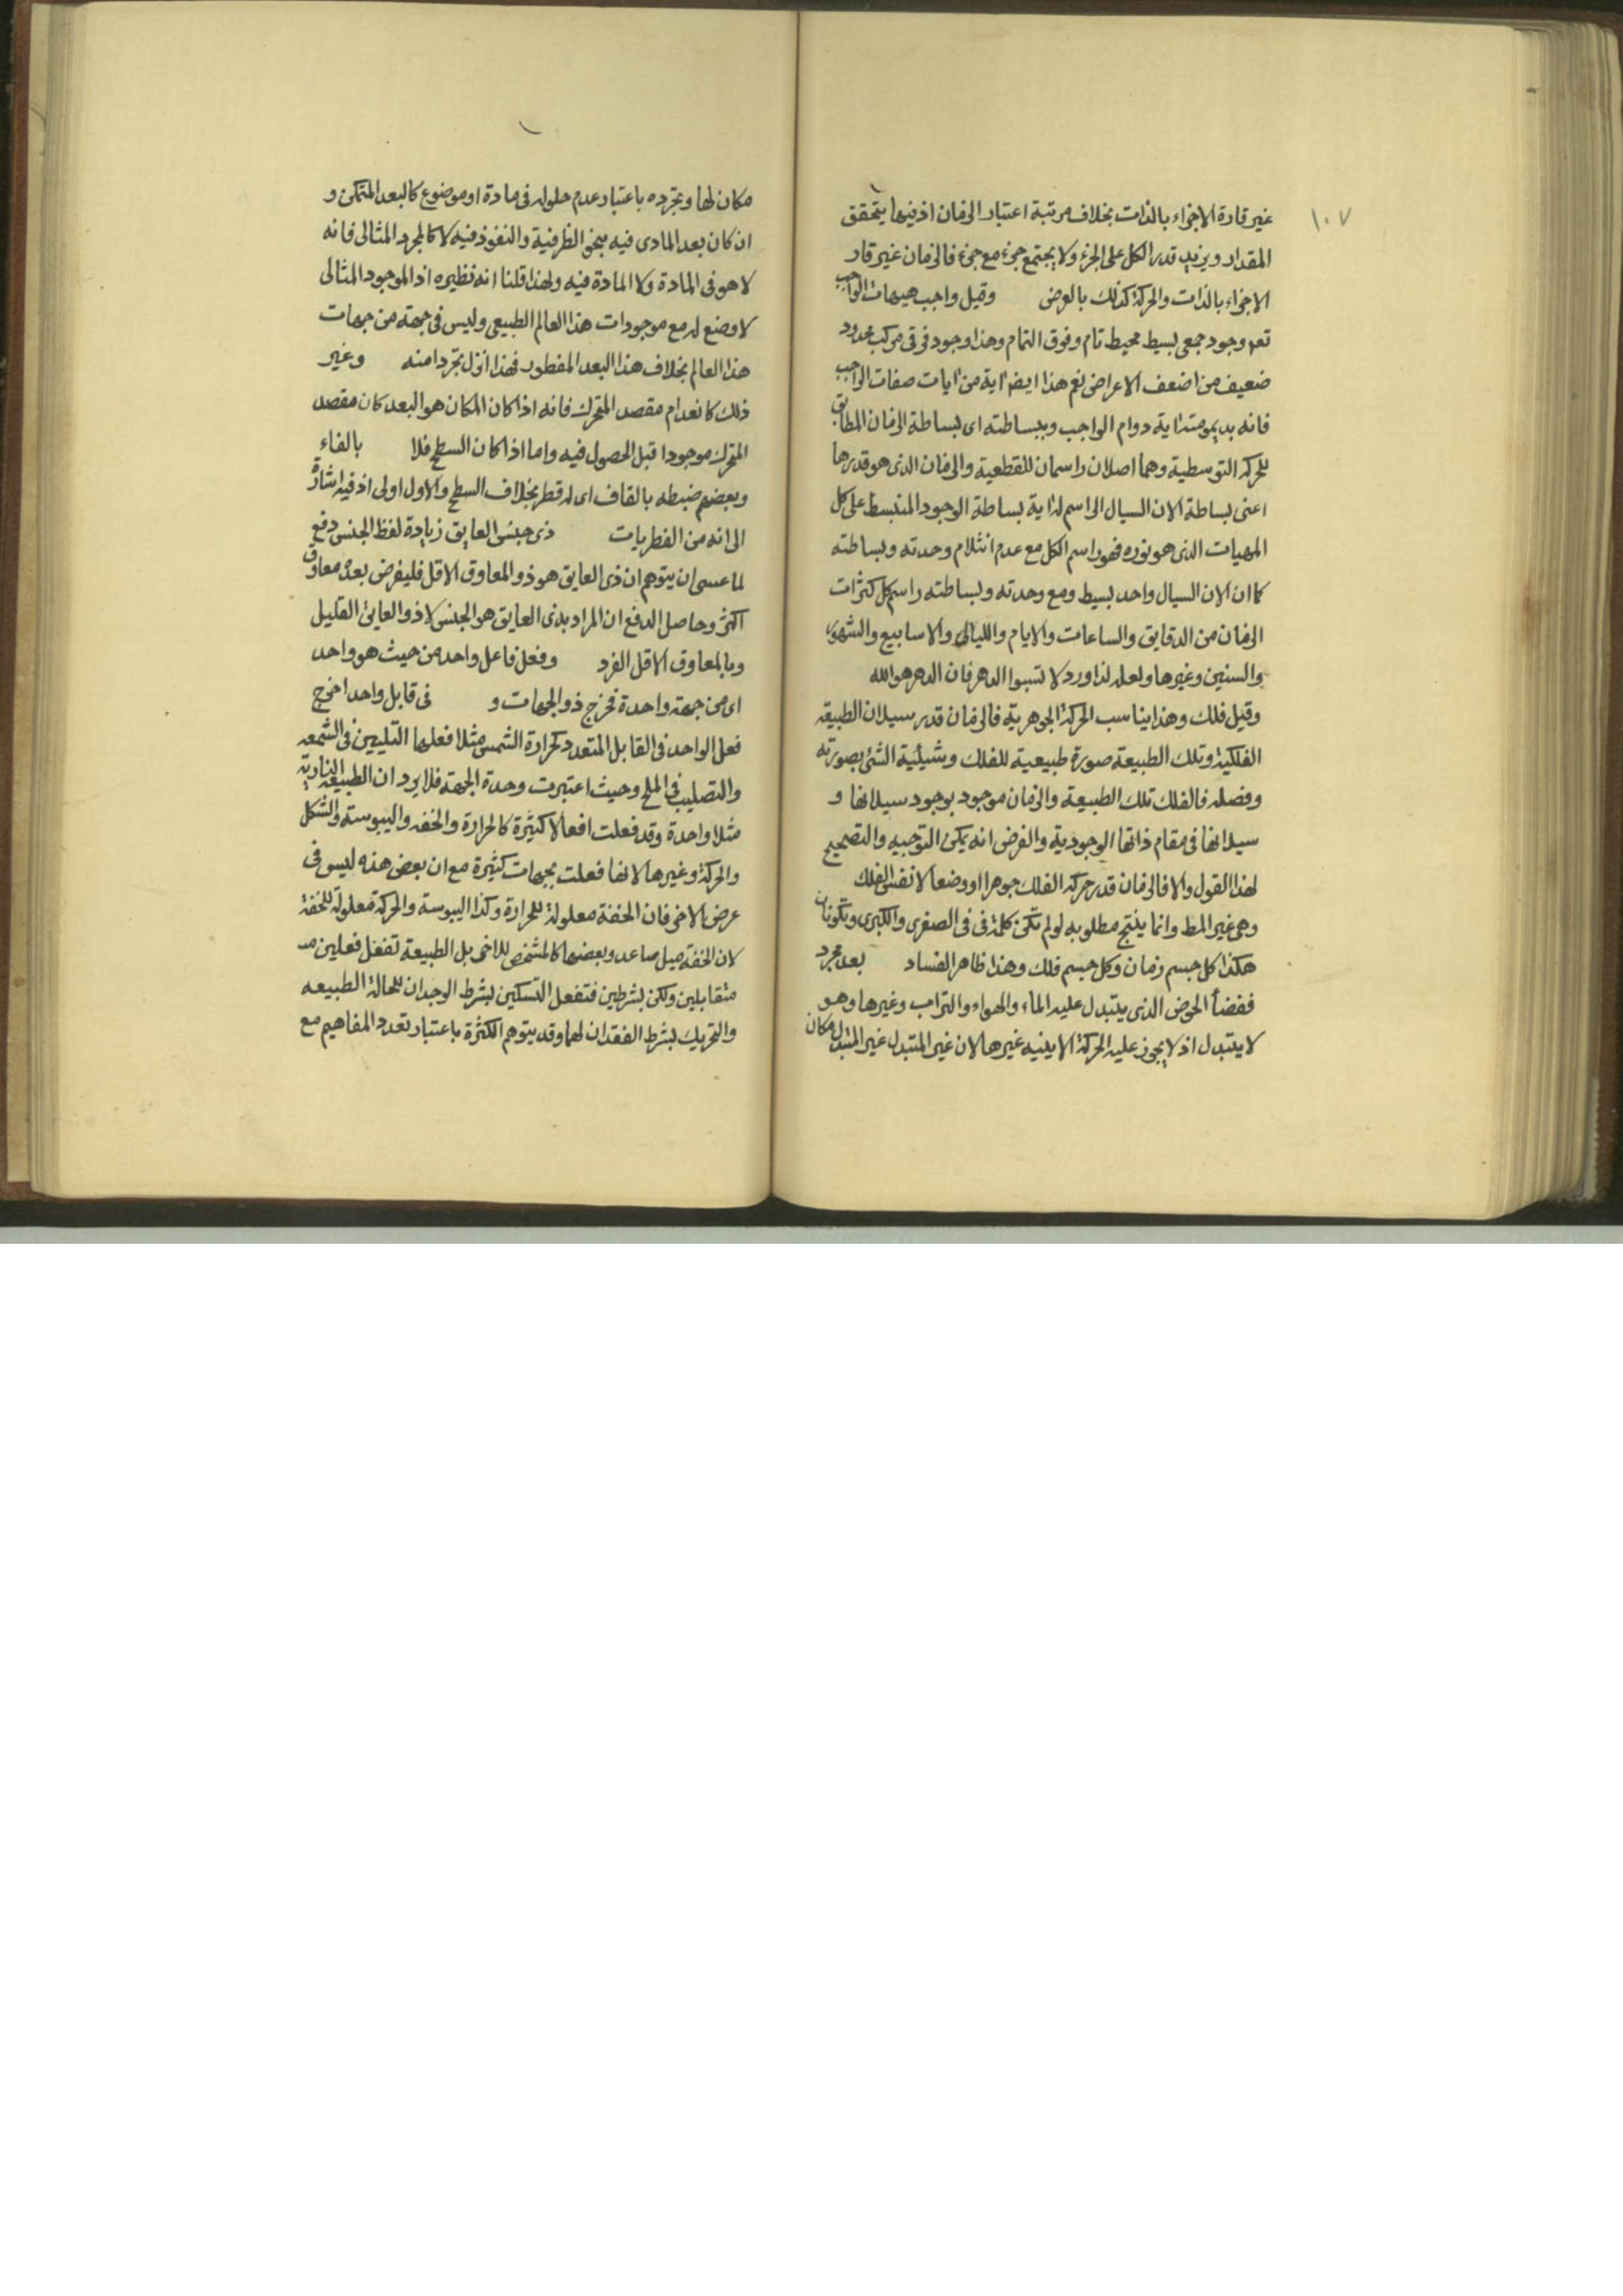 ١٠٧
غير قارة الاجزاء بالذات بخلاف مرتبة اعتبار الزمان اذ فيها يتحقق
المقدار ويزيد قدر الكل على الجزء ولا يجتمع جزء مع جزء فالزمان غير قار
الاجزاء بالذات والحركة كذلك بالعرض وقيل واجب هيهات الواجب
تعم وجود جمعى بسيط محيط تام وفوق التمام وهذا وجود فرقى مركب محدود
ضعيف من اضعف الاعراض نعم هذا ايضا اية من ايات صفات الواجب
فانه بديمومته اية دوام الواجب وببساطته اى بساطة الزمان المطابق
للحركة التوسطية وهما اصلان راسمان للقطعية والزمان الذى هو قدرها
اعنى بساطة الان السيال الراسم له اية بساطة الوجود المنبسط على كل
المهيات الذى هو نوره فهو راسم الكل مع عدم انثلام وحدته وبساطته
كما ان الان السيال واحد بسيط ومع وحدته وبساطته راسم كل كثرات
الزمان من الدقايق والساعات والايام والليالى والاسابيع والشهور
والسنين وغيرها ولعله لذا ورد لا تسبوا الدهر فان الدهر هو الله
وقيل فلك وهذا يناسب الحركة الجوهرية فالزمان قدر سيلان الطبيعة
الفلكية وتلك الطبيعة صورة طبيعية للفلك وشيئية الشئ بصورته
وفصله فالفلك تلك الطبيعة والزمان موجود بوجود سيلانها و
سيلانها فى مقام ذاتها الوجودية والغرض انه يمكن التوجيه والتصحيح
لهذا القول والا فالزمان قدر حركة الفلك جوهرا او وضعا لا نفس الفلك
وهى غير المط وانما ينتج مطلوبه لو لم تكن كلمة فى فى الصغرى والكبرى وتكونان
هكذا كل جسم زمان وكل جسم فلك وهذا ظاهر الفساد بعد مجرد
ففضأ الحوض الذى يتبدل عليه الماء والهواء والتراب وغيرها وهو
لا يتبدل اذ لا يجوز عليه الحركة الاينيه غيرها لان غير المتبدل غير المتبدل مكان
مكان لها وتجرده باعتبار عدم حلوله فى مادة او موضوع كالبعد المتمكن و
ان كان بعد المادى فيه بنحو الظرفية والنفوذ فيه لا كالمجرد المثالى فانه
لا هو فى المادة ولا المادة فيه ولهذا قلنا انه نظيره اذ الموجود المثالى
لا وضع له مع موجودات هذا العالم الطبيعى وليس فى جهة من جهات
هذا العالم بخلاف هذا البعد المفطور فهذا انزل تجردا منه وغير
ذلك كانعدام مقصد المتحرك فانه اذا كان المكان هو البعد كان مقصد
المتحرك موجودا قبل الحصول فيه واما اذا كان السطح فلا بالفاء
وبعضهم ضبطه بالقاف اى له قطر بخلاف السطح والاول اولى اذ فيه اشارة
الى انه من الفطريات ذى جنس العايق زيادة لفظ الجنس دفع
لما عسى ان يتوهم ان ذى العايق هو ذو المعاوق الاقل فليفرض بعده معاوق
اكثر وحاصل الدفع ان المراد بذى العايق هو الجنس لا ذو العايق القليل
وبالمعاوق الاقل الفرد وفعل فاعل واحد من حيث هو واحد
اى من جهة واحدة فخرج ذو الجهات و فى قابل واحد اخرج
فعل الواحد فى القابل المتعدد كحرارة الشمس مثلا فعلها التليين فى الشمعه
والتصليب فى الملح وحيث اعتبرت وحدة الجهة فلا يرد ان الطبيعة النارية
مثلا واحدة وقد فعلت افعالا كثيرة كالحرارة والخفه واليبوسته والشكل
والحركة وغيرها لانها فعلت بجهات كثيرة مع ان بعض هذه ليس فى
عرض الاخر فان الخفة معلولة للحرارة وكذا اليبوسة والحركة معلولة للخفة
لان الخفة ميل صاعد وبعضها كالمشخص للاخر بل الطبيعة تفعل فعلين
متقابلين ولكن بشرطين فتفعل التسكين بشرط الوجدان للحالة الطبيعه
والتحريك بشرط الفقدان لها وقد يتوهم الكثرة باعتبار تعدد المفاهيم مع